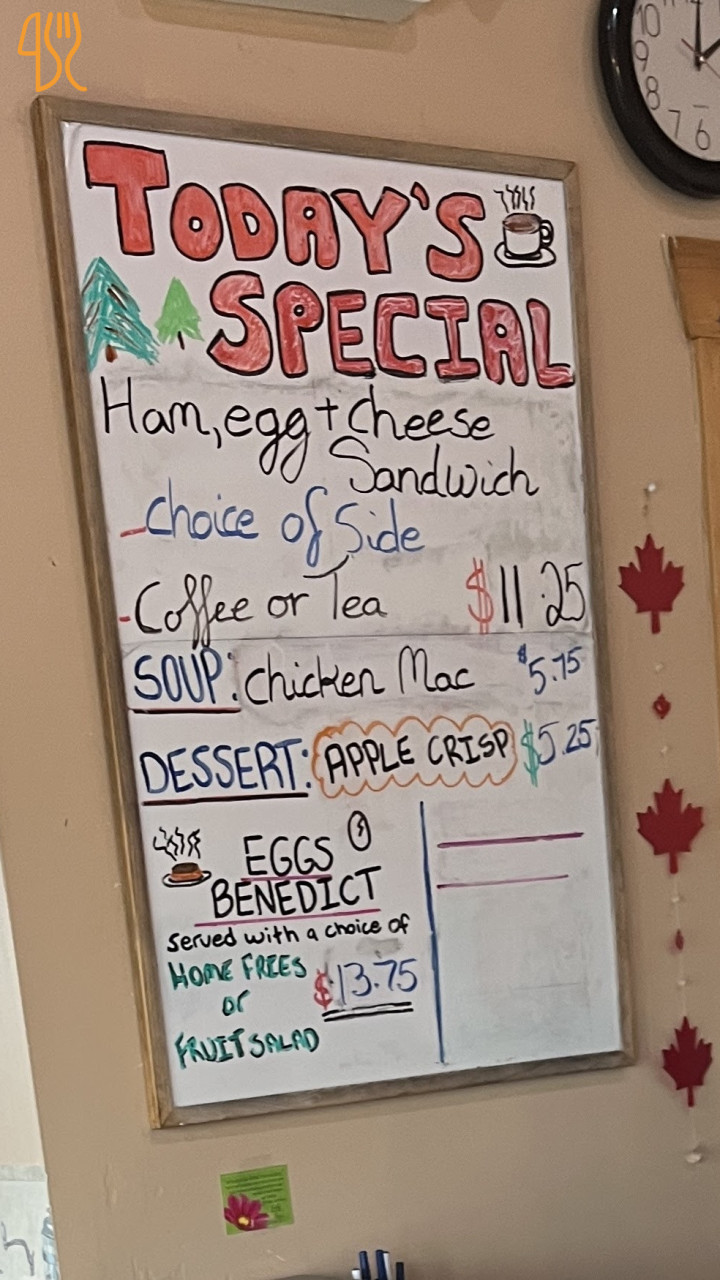 TODAY'S
SPECIAL
Ham, egg + cheese
Sandwich
- choice of Side
- Coffee or Tea $11.25
SOUP: Chicken Mac $5.75
DESSERT: APPLE CRISP $5.25
EGGS
BENEDICT
served with a choice of
HOME FRIES $13.75
or
FRUIT SALAD
10
9
8
7 6